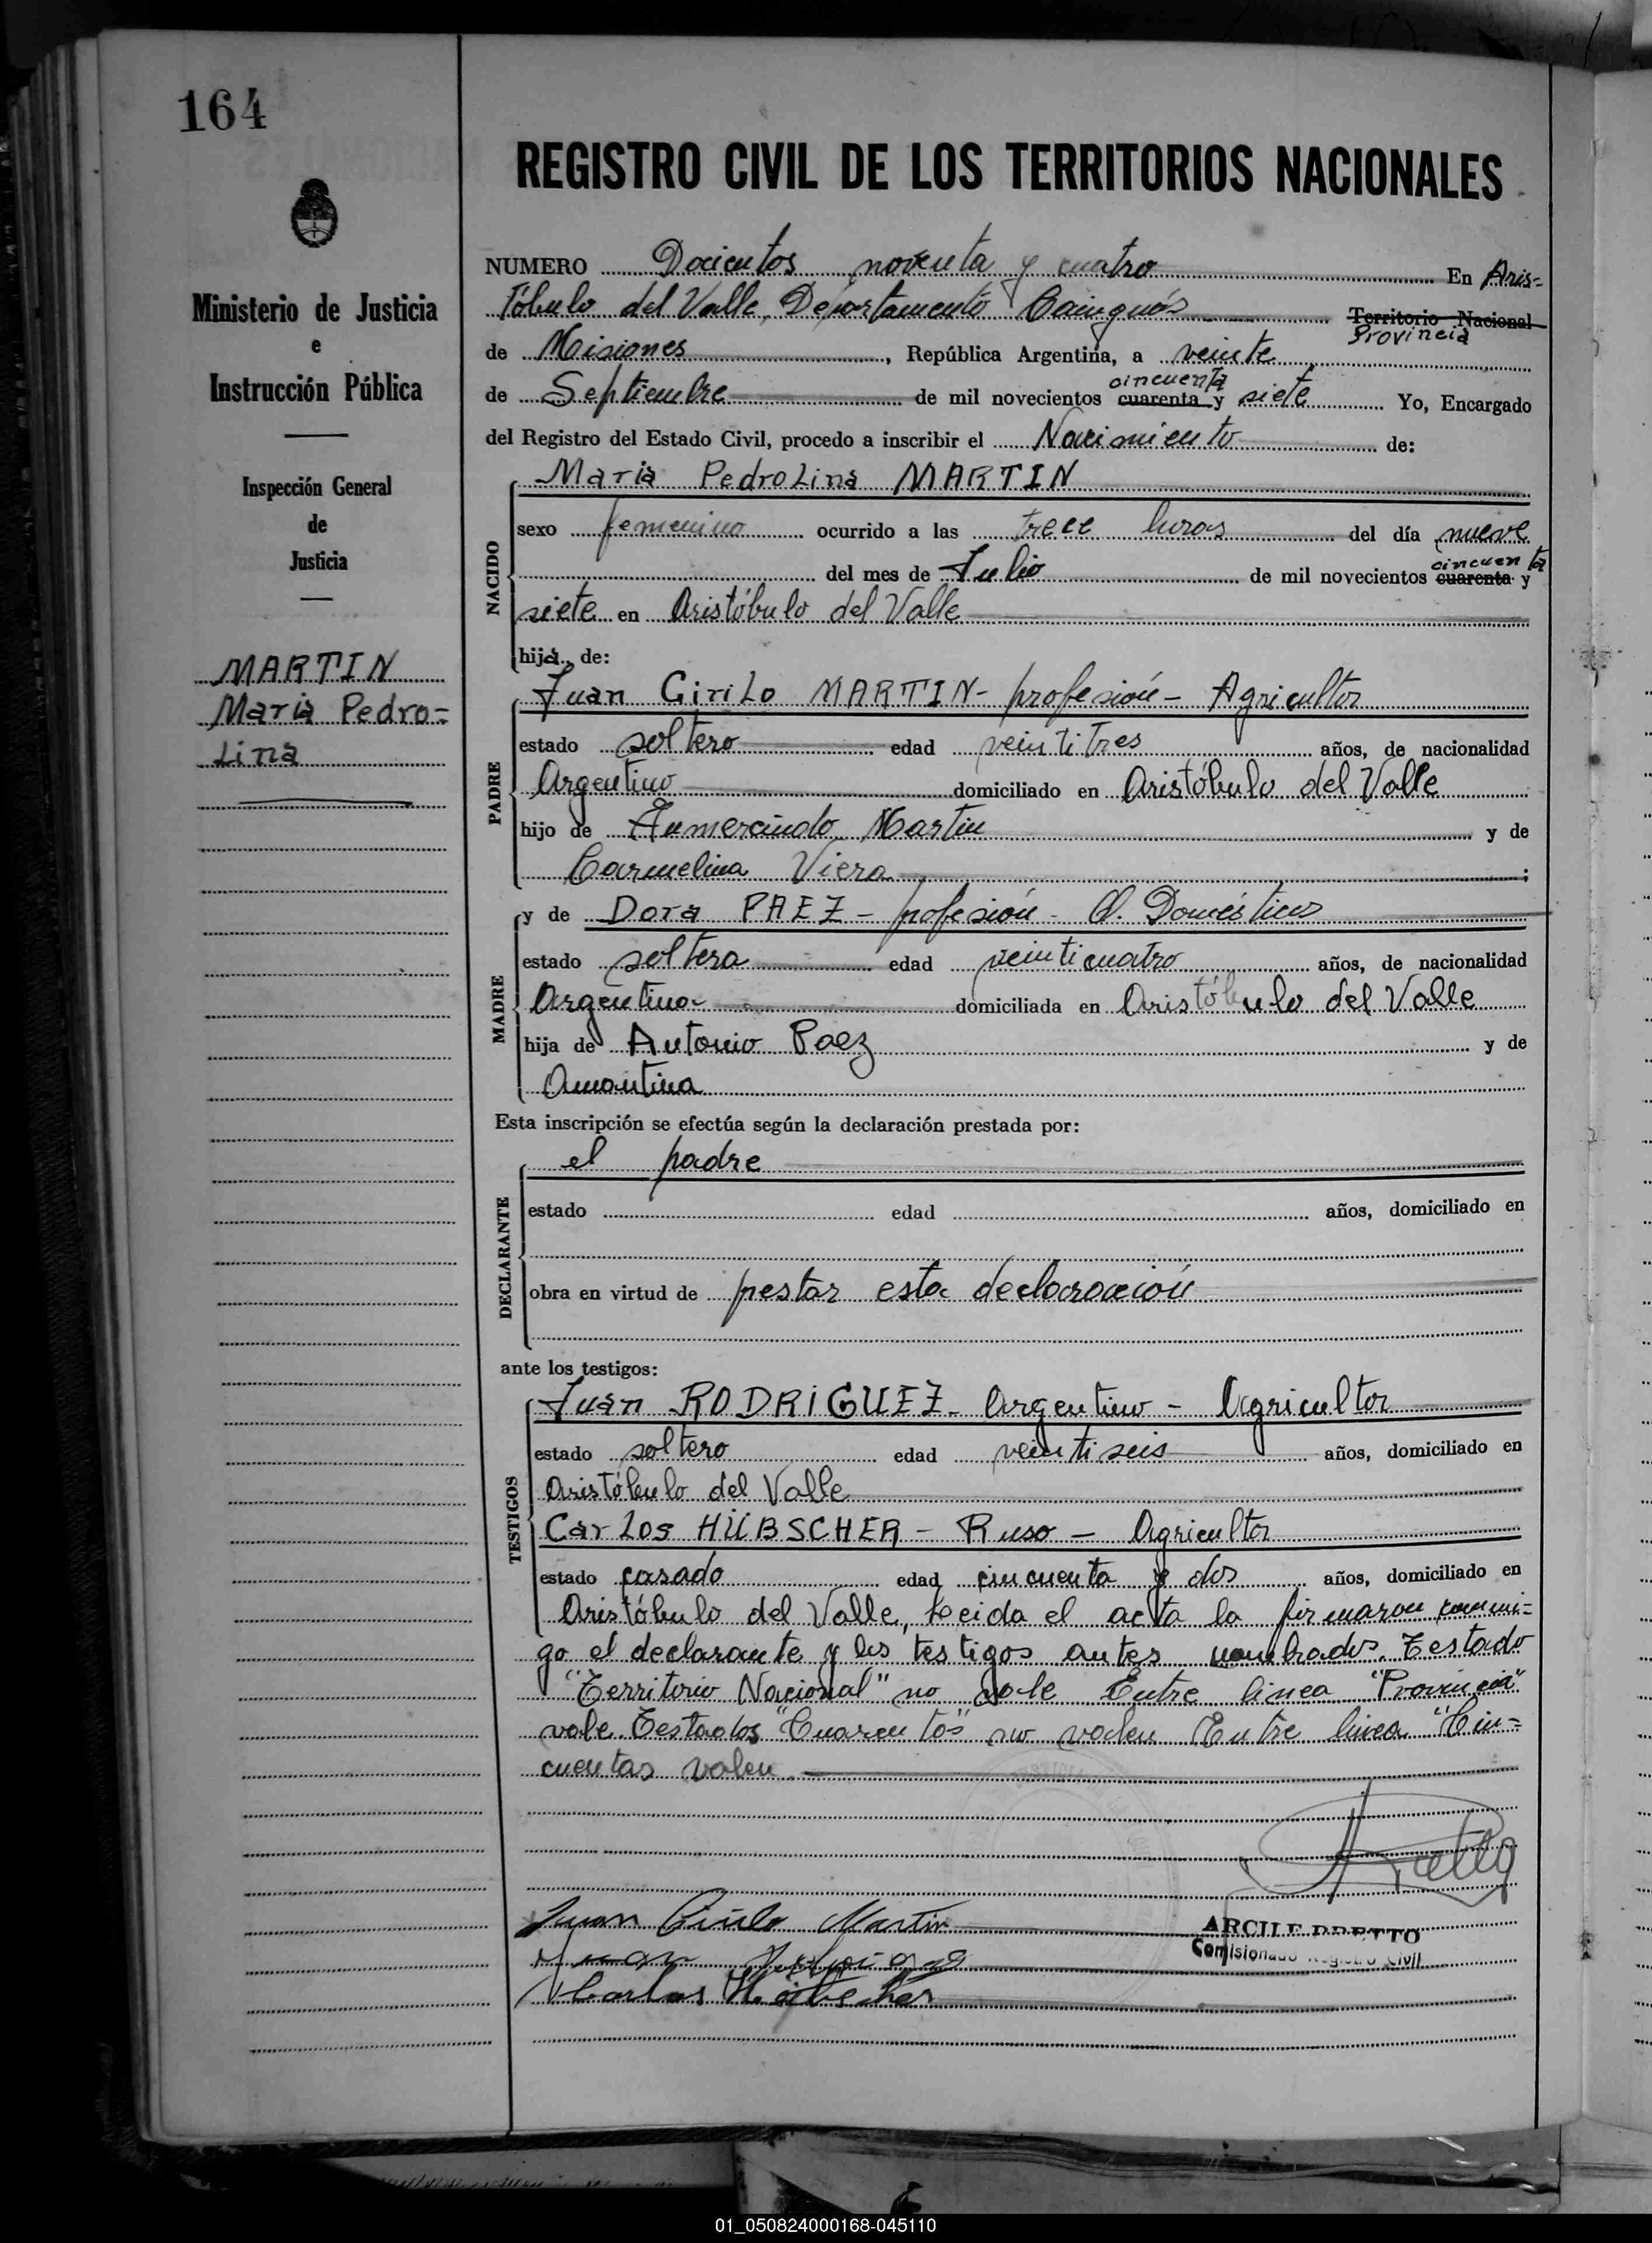 164
Ministerio de Justicia
e
Instrucción Pública
Inspección General
de
Justicia
MARTIN
Maria Pedro=
Lina
REGISTRO CIVIL DE LOS TERRITORIOS NACIONALES
NUMERO Docientos noventa y cuatro En Aris=
tóbulo del Valle, Departamento Cainguás Territorio Nacional
Provincia
de Misiones, República Argentina, a veinte
cincuenta
de Septiembre de mil novecientos cuarenta y siete Yo, Encargado
del Registro del Estado Civil, procedo a inscribir el Nacimiento de:
NACIDO
Maria PedroLina MARTIN
sexo femenino ocurrido a las trece horas del día nueve
cincuenta
del mes de Julio de mil novecientos cuarenta y
siete en Aristóbulo del Valle
hija de:
PADRE
Juan CiriLo MARTIN- profesión- Agricultor
estado soltero edad veintitres años, de nacionalidad
Argentino domiciliado en Aristóbulo del Valle
hijo de Martin y de
Carmelina Viera;
MADRE
y de Dora PAEZ - profesión - Q. Domésticos
estado soltera edad veinticuatro años, de nacionalidad
Argentina domiciliada en Aristóbulo del Valle
hija de Antonio Paez y de
Amantina
Esta inscripción se efectúa según la declaración prestada por:
DECLARANTE
el padre
estado edad años, domiciliado en
obra en virtud de prestar esta declaración
ante los testigos:
TESTIGOS
Juan RODRIGUEZ- Argentino - Agricultor
estado soltero edad veintiseis años, domiciliado en
Aristóbulo del Valle
CarLos HÜBSCHER - Ruso - Agricultor
estado casado edad cincuenta y dos años, domiciliado en
Aristóbulo del Valle, leida el acta la firmaron conmi=
go el declarante y los testigos antes nombrados. Testado
"Territorio Nacional" no vale Entre linea "Provincia"
vale. Testados "Cuarentas" no valen Entre linea "Cin=
cuentas valen
Juan Cirilo Martin
ARCILE BRETTO
Comisionado Registro Civil
Juan
Carlos Hübscher
01_050824000168-045110